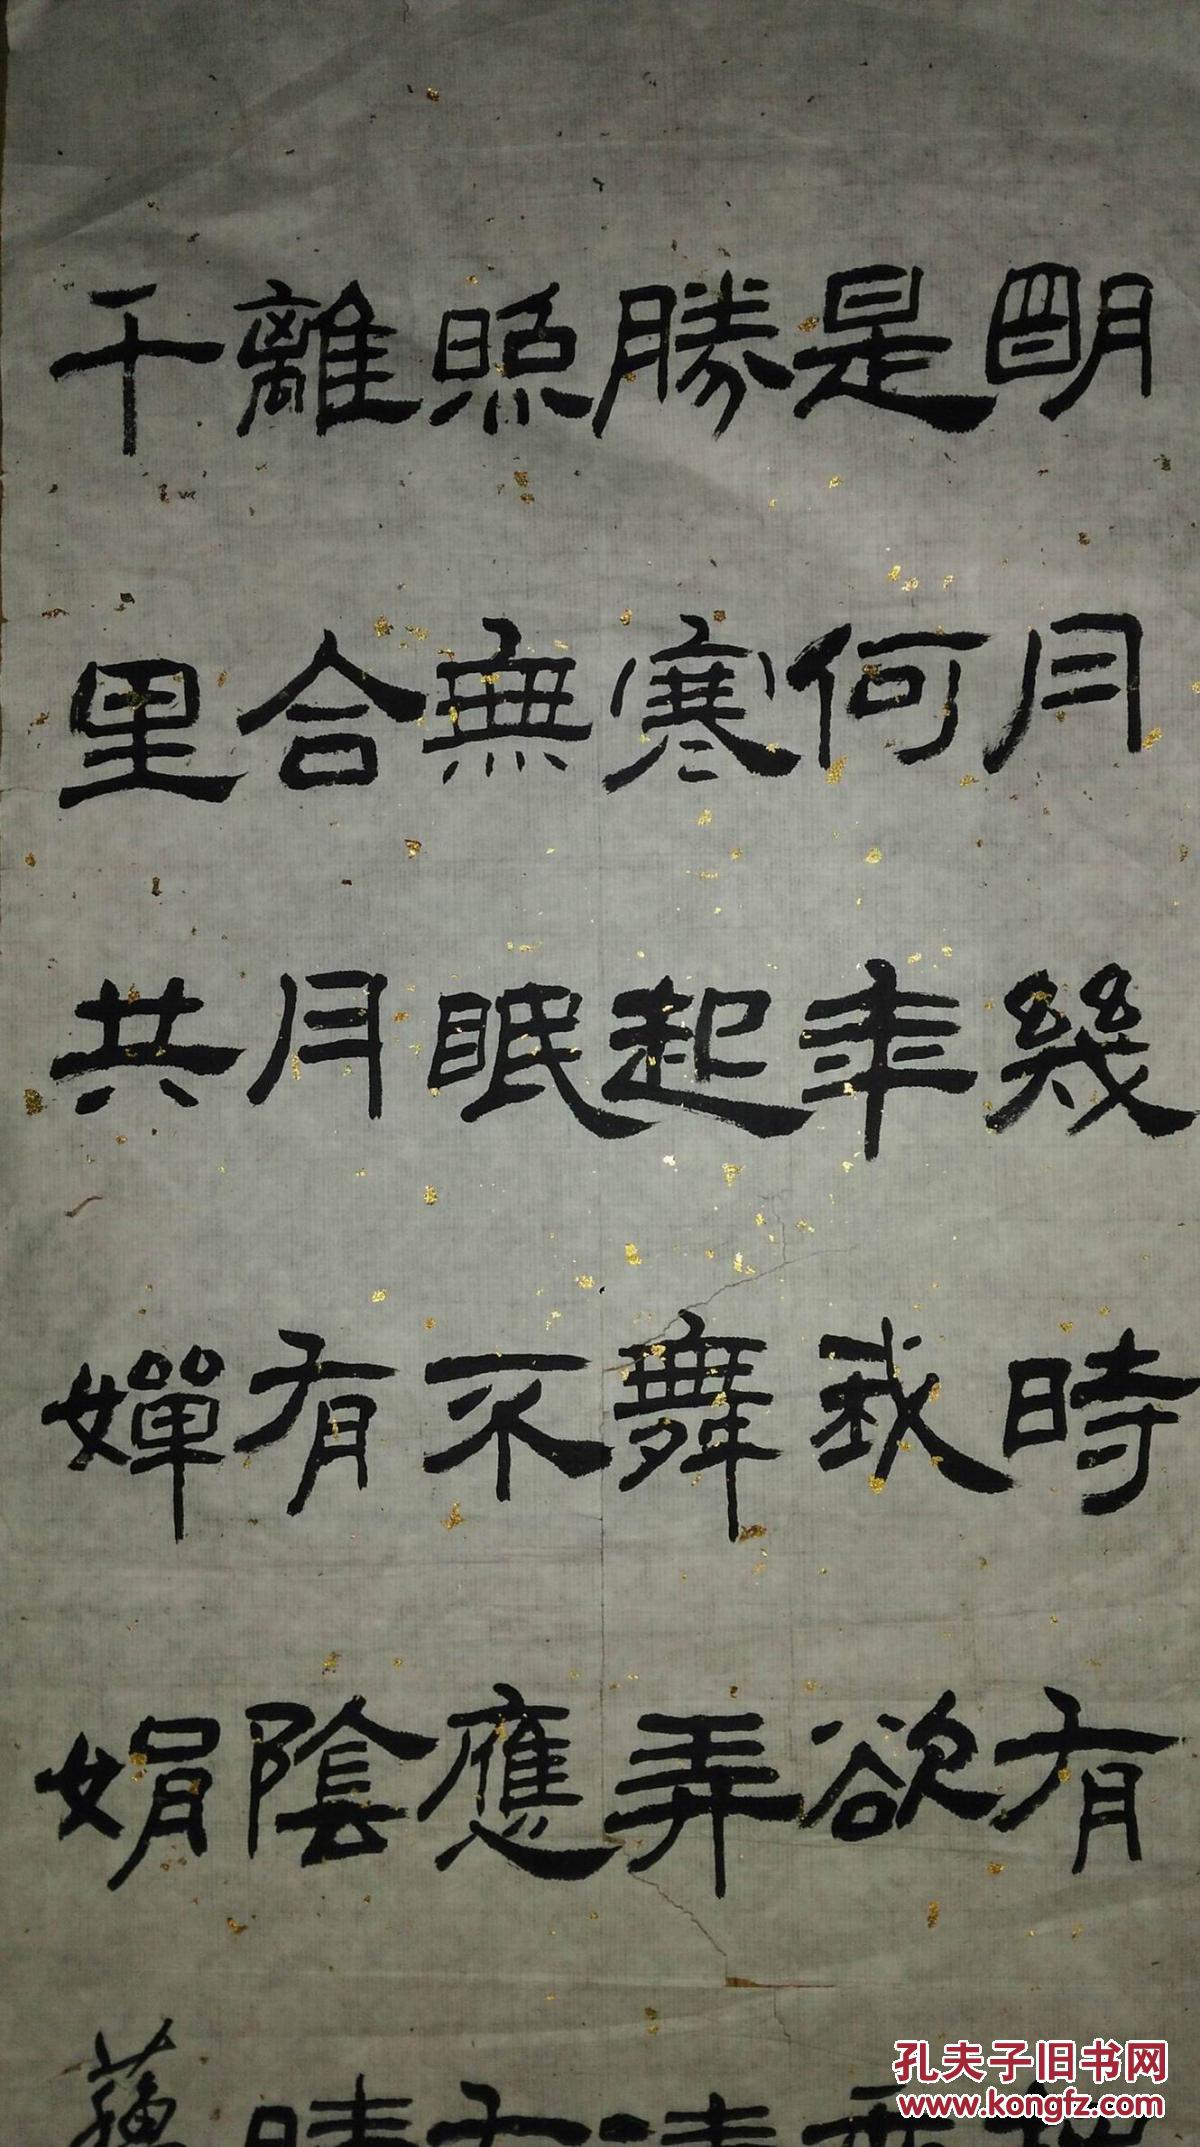 明月幾時有
是何年我欲
勝寒起舞弄
照無眠不應
離合月有陰
千里共嬋娟蘇
孔夫子旧书网
www.kongfz.com